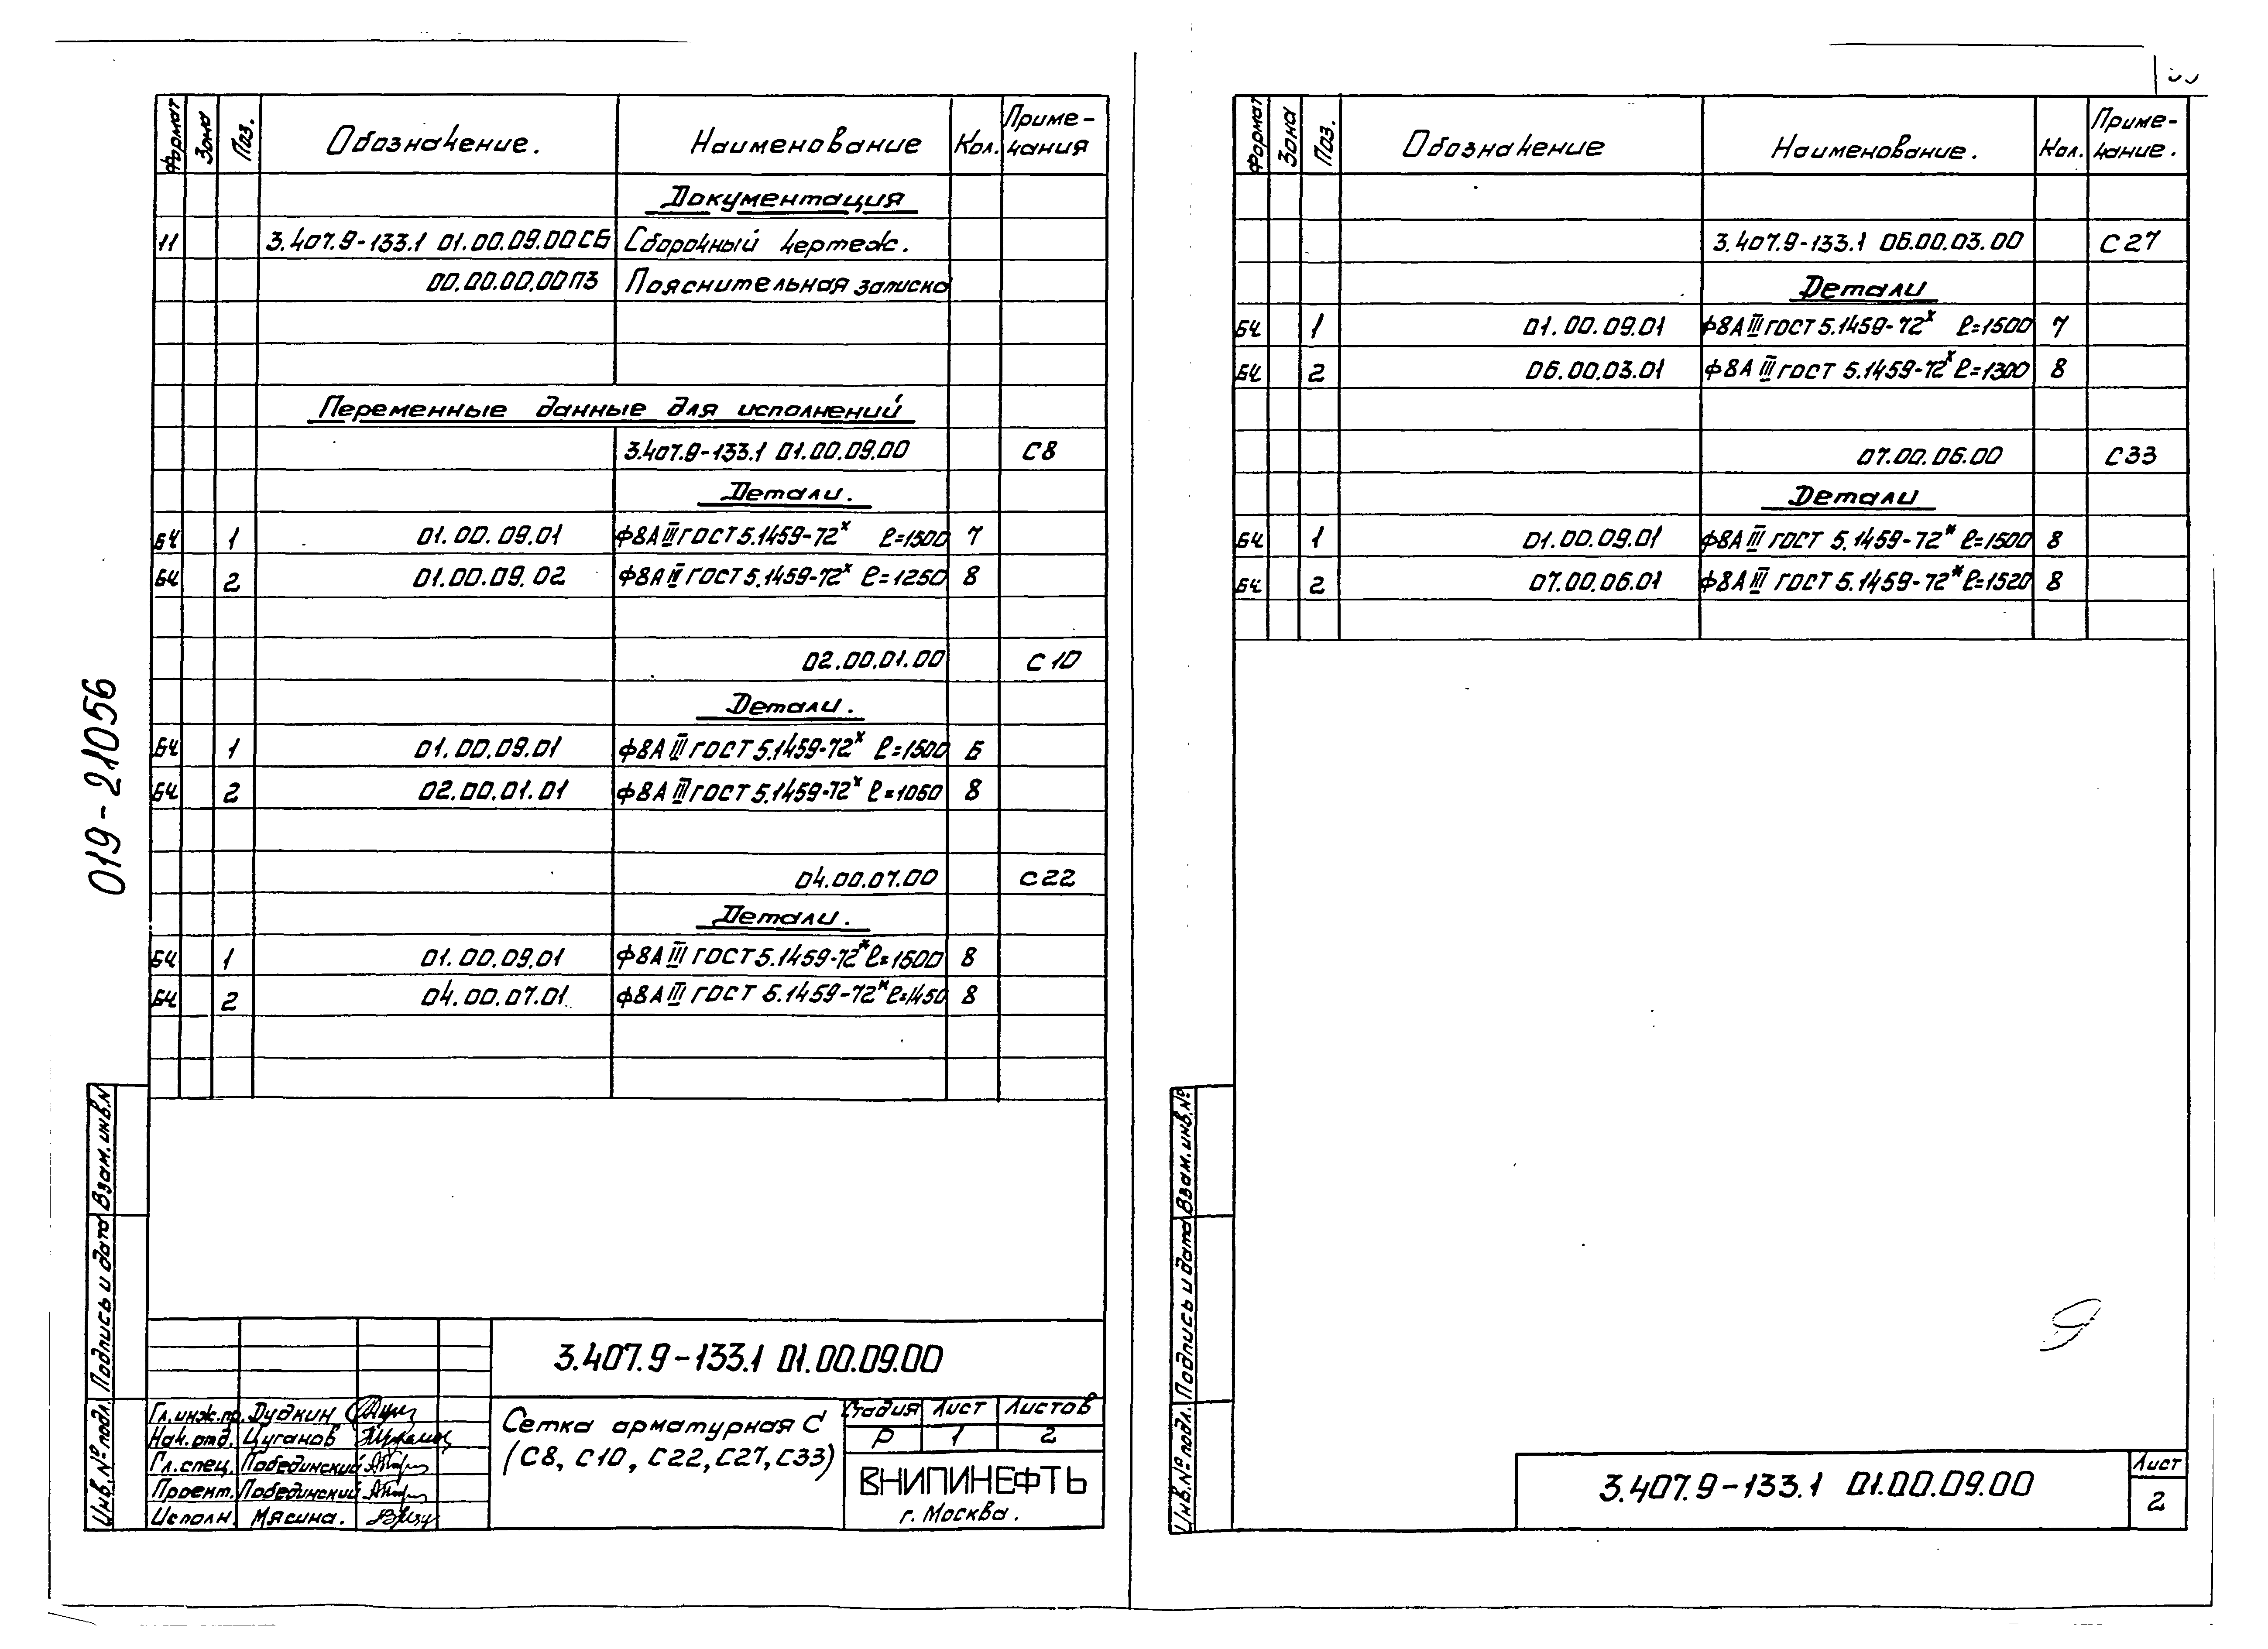 Формат Зона Поз. Обозначение. Наименование Кол. Приме-
чания
Документация
11 3.407.9-133.1 01.00.09.00СБ Сборочный чертеж.
00.00.00.00ПЗ Пояснительная записка
Переменные данные для исполнений
3.407.9-133.1 01.00.09.00 С8
Детали.
БЧ 1 01.00.09.01 Ф8АIII ГОСТ 5.1459-72ˣ ℓ=1500 7
БЧ 2 01.00.09.02 Ф8АIII ГОСТ 5.1459-72ˣ ℓ=1250 8
02.00.01.00 С10
Детали.
БЧ 1 01.00.09.01 Ф8АIII ГОСТ 5.1459-72ˣ ℓ=1500 6
БЧ 2 02.00.01.01 Ф8АIII ГОСТ 5.1459-72ˣ ℓ=1060 8
04.00.07.00 С22
Детали.
БЧ 1 01.00.09.01 Ф8АIII ГОСТ 5.1459-72ˣ ℓ=1500 8
БЧ 2 04.00.07.01 Ф8АIII ГОСТ 5.1459-72ˣ ℓ=1450 8
019-21056
Взам.инв.N
Подпись и дата
Инв.№ подл.
3.407.9-133.1 01.00.09.00
Гл.инж.пр. Дудкин
Нач.отд. Цуганов
Гл.спец. Победински
Проект. Побединский
Исполн. Мясина.
Сетка арматурная С
(С8, С10, С22, С27, С33)
Стадия Лист Листов
Р 1 2
ВНИПИНЕФТЬ
г. Москва.
Формат Зона Поз. Обозначение Наименование. Кол. Приме-
чание.
3.407.9-133.1 06.00.03.00 С27
Детали
БЧ 1 01.00.09.01 Ф8АIII ГОСТ 5.1459-72ˣ ℓ=1500 7
БЧ 2 06.00.03.01 Ф8АIII ГОСТ 5.1459-72ˣ ℓ=1300 8
07.00.06.00 С33
Детали
БЧ 1 01.00.09.01 Ф8АIII ГОСТ 5.1459-72ˣ ℓ=1500 8
БЧ 2 07.00.06.01 Ф8АIII ГОСТ 5.1459-72ˣ ℓ=1520 8
Взам.инв.№
Подпись и дата
Инв.№ подл.
3.407.9-133.1 01.00.09.00
Лист
2